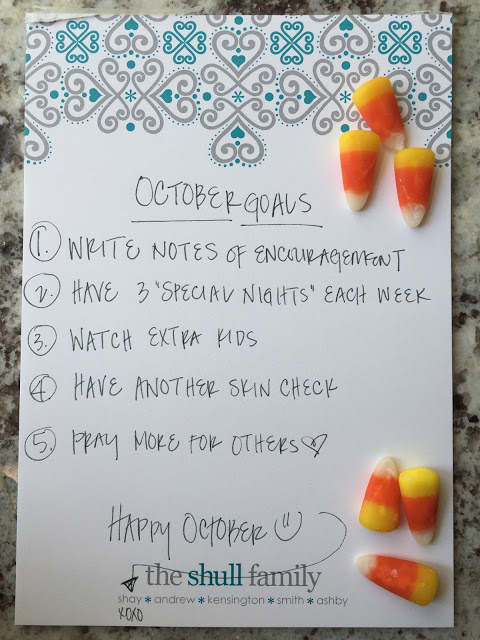 OCTOBER GOALS
1. WRITE NOTES OF ENCOURAGEMENT
2. HAVE 3 "SPECIAL NIGHTS" EACH WEEK
3. WATCH EXTRA KIDS
4. HAVE ANOTHER SKIN CHECK
5. PRAY MORE FOR OTHERS♡
HAPPY OCTOBER :)
the shull family
shay * andrew * kensington * smith * ashby
XOXO